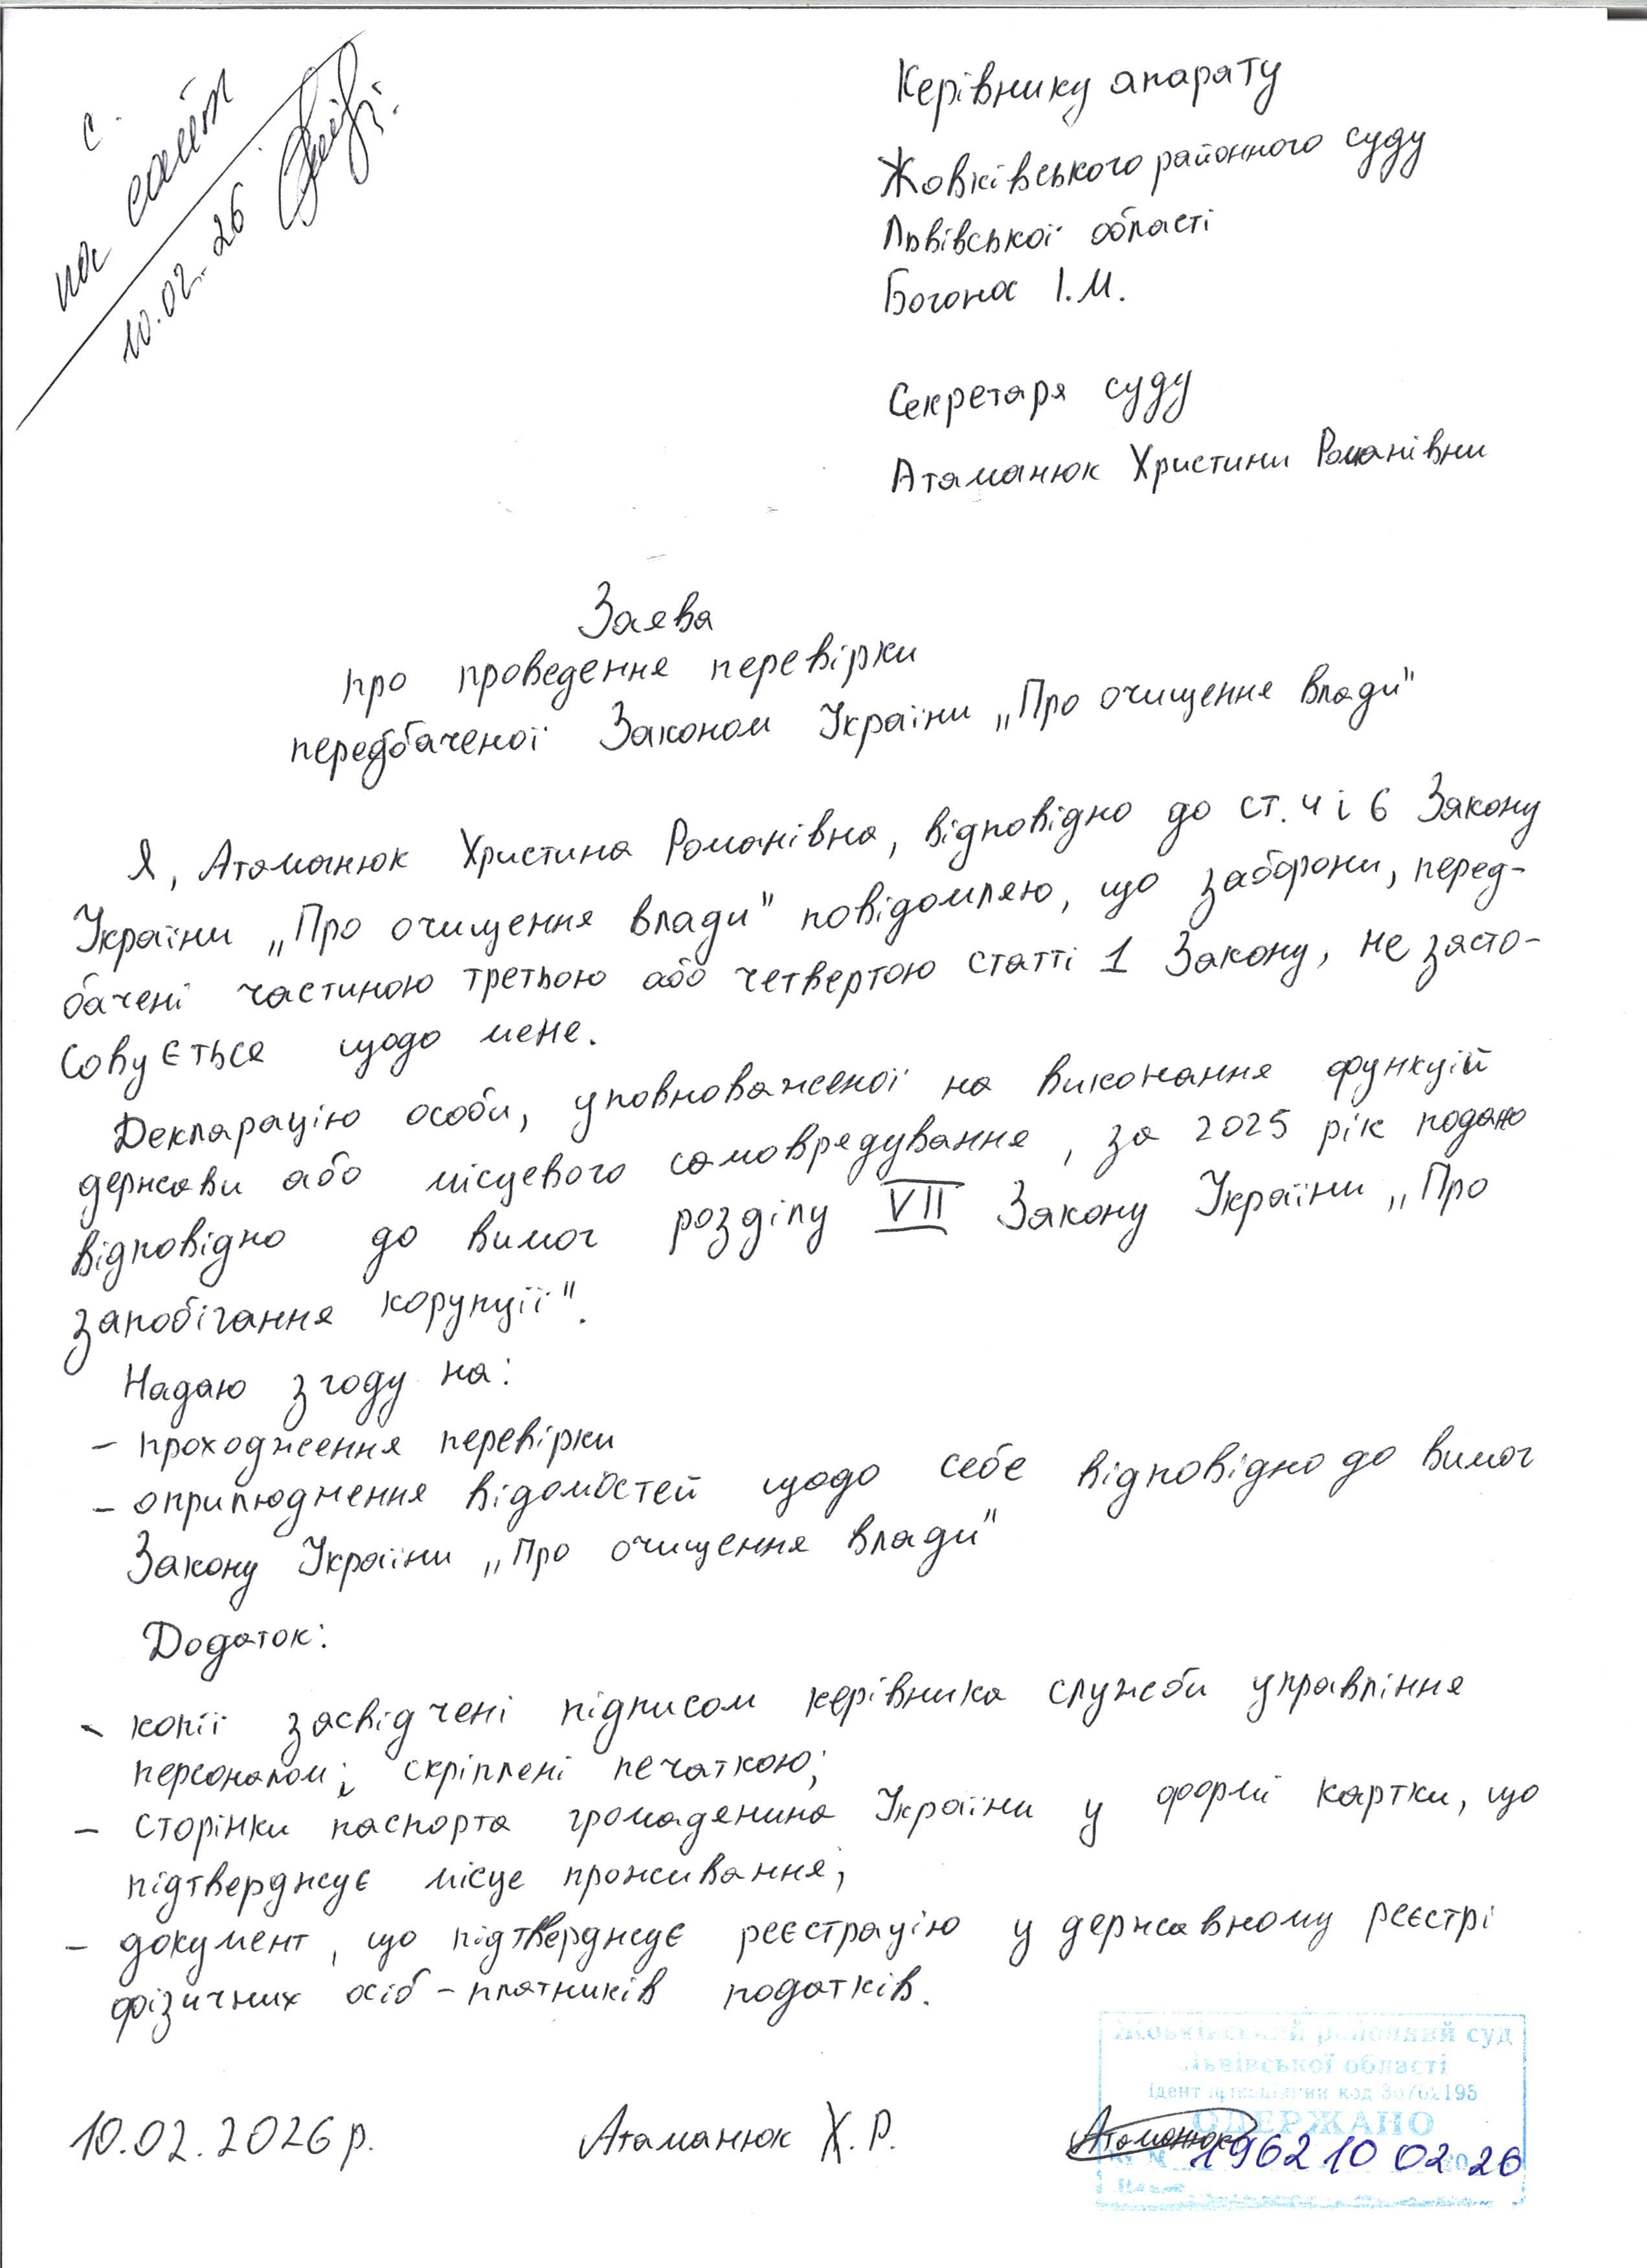 на сайт
10.02.26
Керівнику апарату
Жовківського районного суду
Львівської області
Богоно І.М.
Секретаря суду
Атаманюк Христини Романівни
Заява
про проведення перевірки
передбаченої Законом України „Про очищення влади"
Я, Атаманюк Христина Романівна, відповідно до ст. 4 і 6 Закону
України „Про очищення влади" повідомляю, що заборони, перед-
бачені частиною третьою або четвертою статті 1 Закону, не засто-
совується щодо мене.
Декларацію особи, уповноваженої на виконання функцій
держави або місцевого самоврядування, за 2025 рік подано
відповідно до вимог розділу VII Закону України „Про
запобігання корупції".
Надаю згоду на:
- проходження перевірки
- оприлюднення відомостей щодо себе відповідно до вимог
Закону України „Про очищення влади"
Додаток:
- копії засвідчені підписом керівника служби управління
персоналом; скріплені печаткою;
- сторінки паспорта громадянина України у формі картки, що
підтверджує місце проживання;
- документ, що підтверджує реєстрацію у державному реєстрі
фізичних осіб - платників податків.
Жовківський районний суд
Львівської області
Ідентифікаційний код
ОДЕРЖАНО
10.02.2026 р. Атаманюк Х.Р. Атаманюк
1962 10 02 26